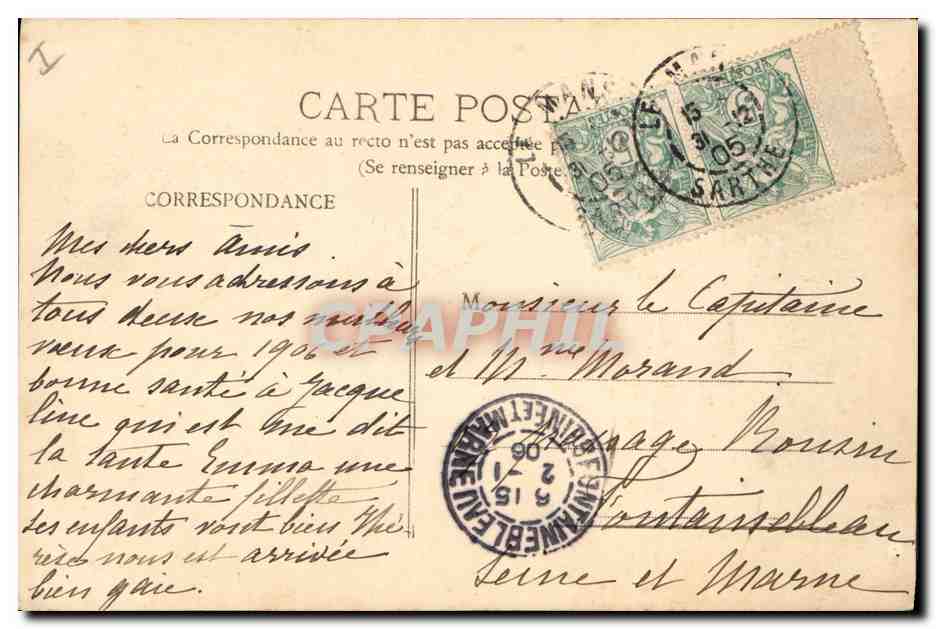 I
CARTE POSTA
La Correspondance au recto n'est pas acceptée p
(Se renseigner à la Poste.
CORRESPONDANCE
Mes chers Amis
Nous vous adressons à
tous deux nos meilleurs
vœux pour 1906 et
bonne santé à Jacque
line qui est me dit
la tante Emma une
charmante fillette
Les enfants vont bien Thé-
rèse nous est arrivée
bien gaie.
LE MANS
15
31
05
LE MANS
15
31 - 12
05
SARTHE
Monsieur le Capitaine
et Mme Morand
Passage Rousin
Fontainebleau
Seine et Marne
FONTAINEBLEAU
SEINE ET MARNE
6 15
2 - 1
06
CPAPHIL